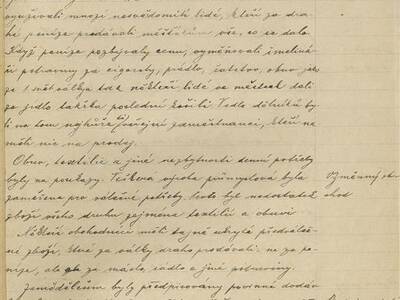 využívali mnozí nesvědomití lidé, kteří za dra-
hé peníze prodávali měšťákům vše, co se dalo.
Když peníze pozbývaly cenu, vyměňovali zeměděl-
ci potraviny za cigarety, prádlo, šatstvo, obuv jak-
že 1 metr tak někteří lidé ve městech dali
za jídlo takřka poslední košili. Vedle dělníků by-
li na tom nejhůře veřejní zaměstnanci, kteří ne-
měli nic na prodej.
Obuv, textilie a jiné nezbytnosti denní potřeby
byly na poukazy. Veškerá výroba průmyslová byla Výměnný ob-
zaměřena pro válečné potřeby, proto byl nedostatek chod
zboží všeho druhu zejména textilií a obuvi
Někteří obchodníci měli tajně ukryté předváleč-
né zboží, které za války draho prodávali ne za pe-
níze, ale za máslo, sádlo a jiné potraviny.
Zemědělcům byly předpisovány povinné dodáv-